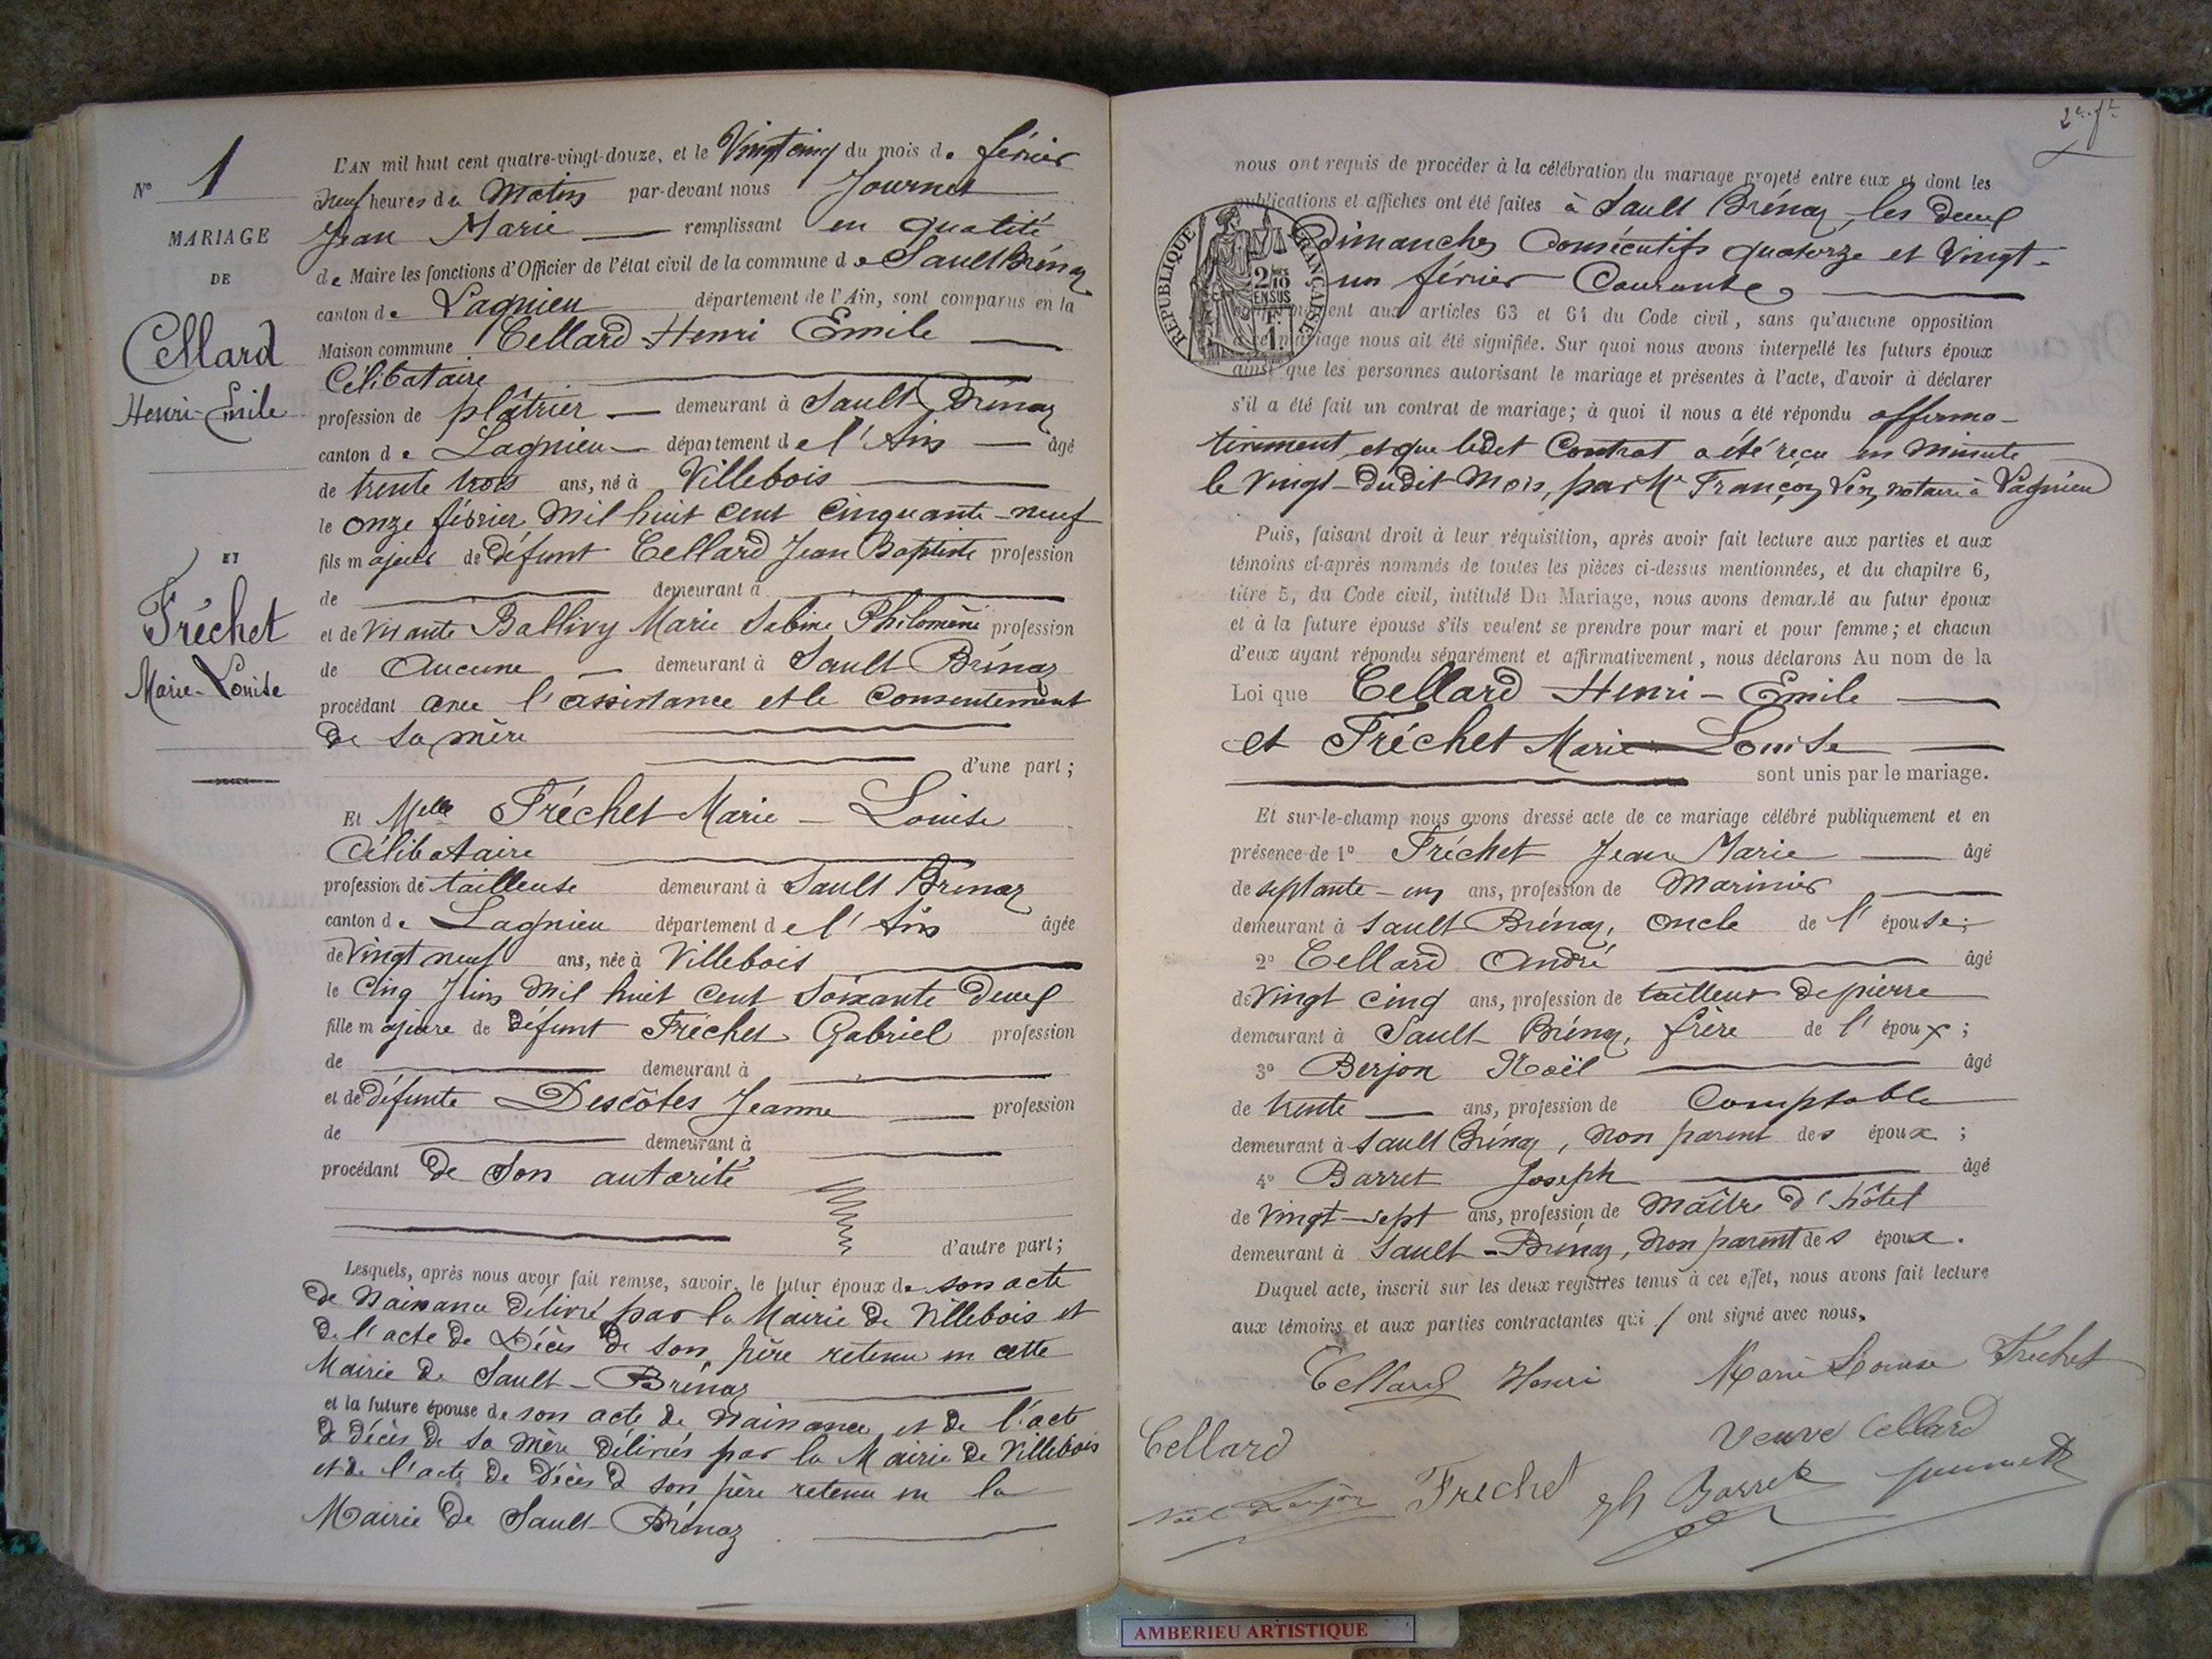 N° 1
MARIAGE
DE
Cellard
Henri-Emile
ET
Fréchet
Marie-Louise
L'AN mil huit cent quatre-vingt-douze, et le Vingt cinq du mois de février
à neuf heures du Matin par-devant nous Journet
Jean Marie remplissant en qualité
de Maire les fonctions d'Officier de l'état civil de la commune de Sault Brénaz
canton de Lagnieu département de l'Ain, sont comparus en la
Maison commune Cellard Henri Emile
Célibataire
profession de plâtrier demeurant à Sault Brénaz
canton de Lagnieu département de l'Ain âgé
de trente trois ans, né à Villebois
le onze février Mil huit cent cinquante-neuf
fils majeur de défunt Cellard Jean Baptiste profession
de demeurant à
et de vivante Ballivy Marie Sabine Philomène profession
de Aucune demeurant à Sault Brénaz
procédant avec l'assistance et le consentement
de sa mère
d'une part;
Et Melle Fréchet Marie-Louise
Célibataire
profession de tailleuse demeurant à Sault Brénaz
canton de Lagnieu département de l'Ain âgée
de Vingt neuf ans, née à Villebois
le Cinq Juin Mil huit cent soixante deux
fille majeure de défunt Fréchet Gabriel profession
de demeurant à
et de défunte Descôtes Jeanne profession
de demeurant à
procédant de son autorité
d'autre part;
Lesquels, après nous avoir fait remise, savoir, le futur époux de son acte
de Naissance délivré par la Mairie de Villebois et
de l'acte de Décès de son père retenu en cette
Mairie de Sault-Brénaz
et la future épouse de son acte de Naissance et de l'acte
d décès de sa mère délivrés par la Mairie de Villebois
et de l'acte de Décès d son père retenu en la
Mairie de Sault-Brénaz
nous ont requis de procéder à la célébration du mariage projeté entre eux et dont les
publications et affiches ont été faites à Sault Brénaz, les deux
dimanches consécutifs quatorze et Vingt-
un février Courant
RÉPUBLIQUE FRANÇAISE
2/10 EN SUS
1 F.
aux articles 63 et 64 du Code civil, sans qu'aucune opposition
mariage nous ait été signifiée. Sur quoi nous avons interpellé les futurs époux
ainsi que les personnes autorisant le mariage et présentes à l'acte, d'avoir à déclarer
s'il a été fait un contrat de mariage; à quoi il nous a été répondu affirma-
tivement, et que ledit Contrat a été reçu en Minute
le Vingt dudit Mois, par Me notaire à Lagnieu
Puis, faisant droit à leur réquisition, après avoir fait lecture aux parties et aux
témoins ci-après nommés de toutes les pièces ci-dessus mentionnées, et du chapitre 6,
titre 5, du Code civil, intitulé Du Mariage, nous avons demandé au futur époux
et à la future épouse s'ils veulent se prendre pour mari et pour femme; et chacun
d'eux ayant répondu séparément et affirmativement, nous déclarons Au nom de la
Loi que Cellard Henri-Emile
et Fréchet Marie Louise
sont unis par le mariage.
Et sur-le-champ nous avons dressé acte de ce mariage célébré publiquement et en
présence de 1° Fréchet Jean Marie âgé
de septante-un ans, profession de Marinier
demeurant à Sault Brénaz, oncle de l'épouse;
2° Cellard André âgé
de Vingt cinq ans, profession de tailleur de pierre
demeurant à Sault Brénaz, frère de l'époux;
3° Berjon Noël âgé
de trente ans, profession de Comptable
demeurant à Sault Brénaz, non parent des époux;
4° Barret Joseph âgé
de Vingt-sept ans, profession de Maître d'hôtel
demeurant à Sault-Brénaz, non parent des époux.
Duquel acte, inscrit sur les deux registres tenus à cet effet, nous avons fait lecture
aux témoins et aux parties contractantes qui / ont signé avec nous.
Cellard Henri Marie Louise Frechet
Cellard Veuve Cellard
Noël Berjon Frechet Jh Barret Journet
AMBERIEU ARTISTIQUE